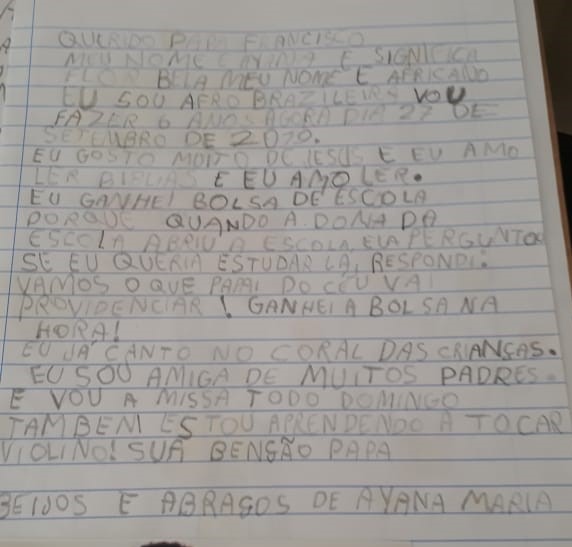 QUERIDO PAPA FRANCISCO
MEU NOME É AYANA E SIGNIFICA
FLOR BELA MEU NOME É AFRICANO
EU SOU AFRO BRAZILEIRA VOU
FAZER 6 ANOS AGORA DIA 27 DE
SETEMBRO DE 2020.
EU GOSTO MUITO DE JESUS E EU AMO
LER BIBLIAS E EU AMO LER.
EU GANHEI BOLSA DE ESCOLA
PORQUE QUANDO A DONA DA
ESCOLA ABRIU A ESCOLA, ELA PERGUNTOU
SE EU QUERIA ESTUDAR LÁ, RESPONDI:
VAMOS O QUE PAPAI DO CÉU VAI
PROVIDENCIAR! GANHEI A BOLSA NA
HORA!
EU JÁ CANTO NO CORAL DAS CRIANÇAS.
EU SOU AMIGA DE MUITOS PADRES.
E VOU A MISSA TODO DOMINGO
TAMBEM ESTOU APRENDENDO A TOCAR
VIOLINO! SUA BENSÃO PAPA
BEIJOS E ABRAÇOS DE AYANA MARIA